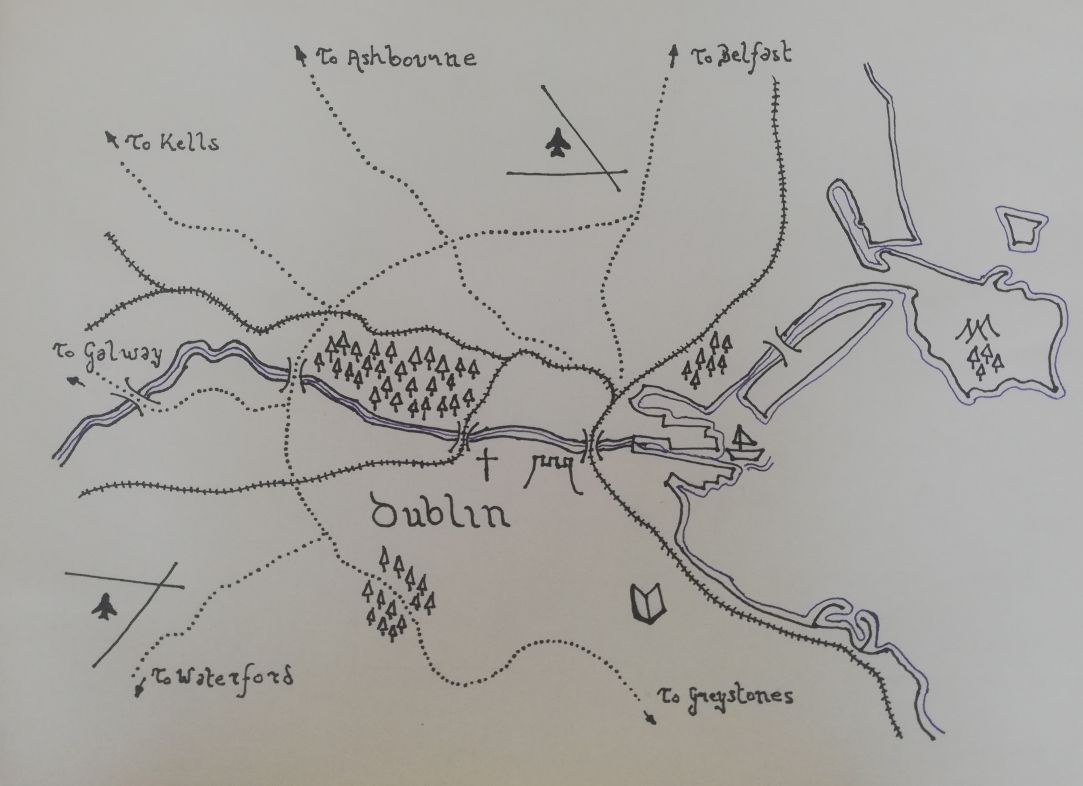 To Ashbourne
To Belfast
To Kells
To Galway
Dublin
To Waterford
To Greystones